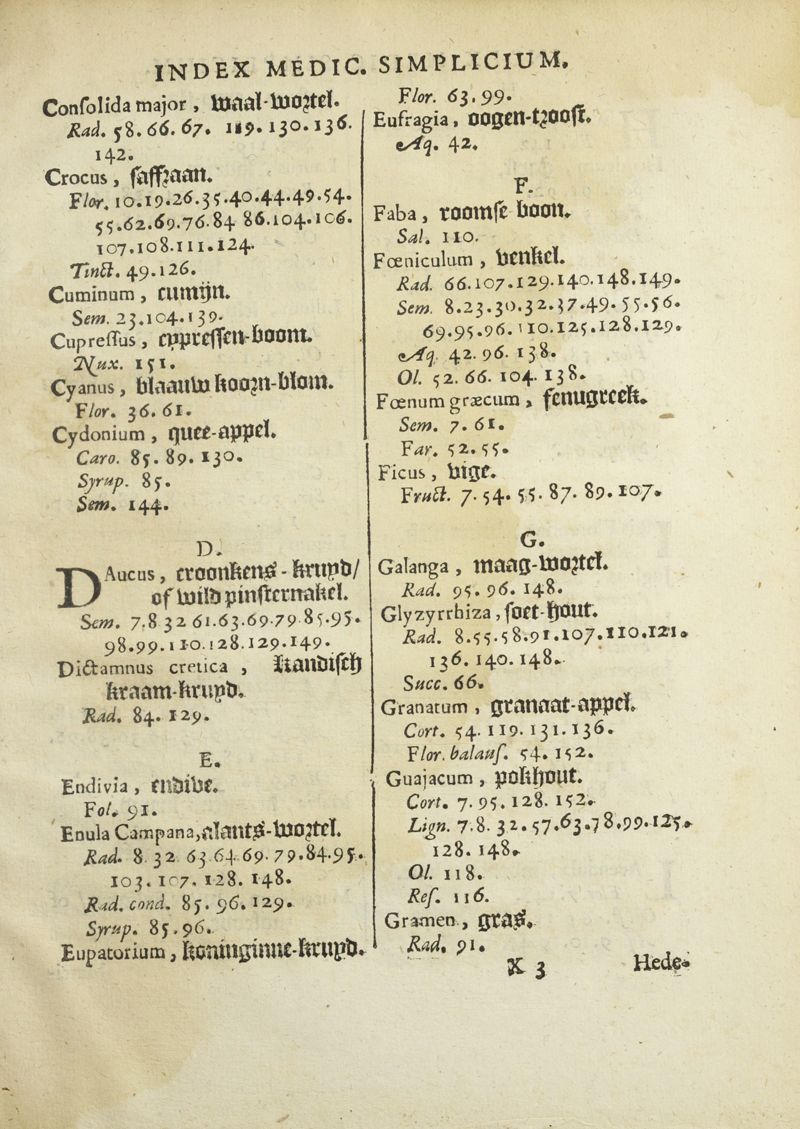 INDEX MEDIC. SIMPLICIUM.
Conſolida major, waal-wortel.
Rad. 58. 66. 67. 119. 130. 136.
142.
Crocus, ſaffraan.
Flor. 10.19.26.35.40.44.49.54.
55.62.69.76.84 86.104.106.
107.108.111.124.
Tinct. 49.126.
Cuminum, cumijn.
Sem. 23.104.139.
Cupreſſus, cypreſſen-boom.
Nux. 151.
Cyanus, blaauw koorn-blom.
Flor. 36. 61.
Cydonium, quee-appel.
Caro. 85. 89. 130.
Syrup. 85.
Sem. 144.
D.
DAucus, croonkens-kruyd/
of wild pinſternakel.
Sem. 7.8 32 61.63.69.79 85.95.
98.99.110.128.129.149.
Dictamnus cretica, Kandiſch
kraam-kruyd.
Rad. 84. 129.
E.
Endivia, endive.
Fol. 91.
Enula Campana, alants-wortel.
Rad. 8 32 63 64.69.79.84.95.
103. 107. 128. 148.
Rad. cond. 85. 96. 129.
Syrup. 85.96.
Eupatorium, koninginne-kruyd.
Flor. 63.99.
Eufragia, oogen-trooſt.
Aq. 42.
F.
Faba, roomſe boon.
Sal. 110.
Fœniculum, venkel.
Rad. 66.107.129.140.148.149.
Sem. 8.23.30.32.37.49.55.56.
69.95.96.110.125.128.129.
Aq. 42. 96. 138.
Ol. 52. 66. 104. 138.
Fœnum græcum, fenugreek.
Sem. 7. 61.
Far. 52.55.
Ficus, vige.
Fruct. 7. 54. 55. 87. 89. 107.
G.
Galanga, maag-wortel.
Rad. 95. 96. 148.
Glyzyrrhiza, ſoet-hout.
Rad. 8.55.58.91.107.110.121.
136. 140. 148.
Succ. 66.
Granatum, granaat-appel.
Cort. 54. 119. 131. 136.
Flor. balauſ. 54. 152.
Guajacum, pokhout.
Cort. 7. 95. 128. 152.
Lign. 7.8. 32.57.63.78.99.125.
128. 148.
Ol. 118.
Reſ. 116.
Gramen, gras.
Rad. 91.
X 3 Hede-